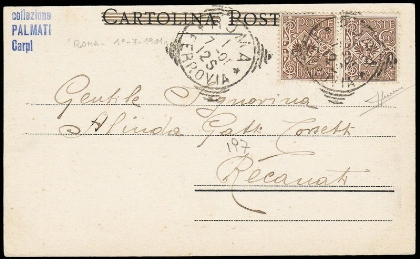 collezione
PALMATI
Carpi
CARTOLINA POST
ROMA - 1º-7-1901
ROMA
FERROVIA
Gentile Signorina
Alinda Gatti Corsetti
197
Recanati